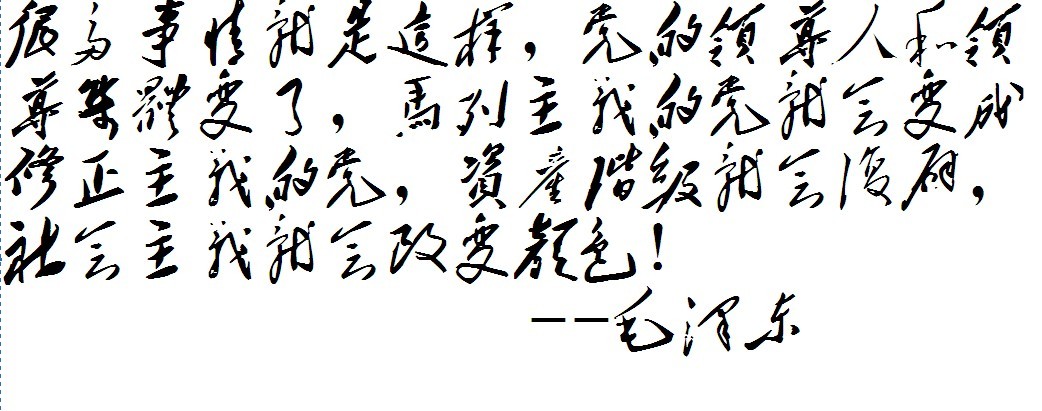 很多事情就是這样，党的領导人和領
导集體变了，馬列主义的党就会变成
修正主义的党，資産階級就会復辟，
社会主义就会改变顔色！
——毛泽东